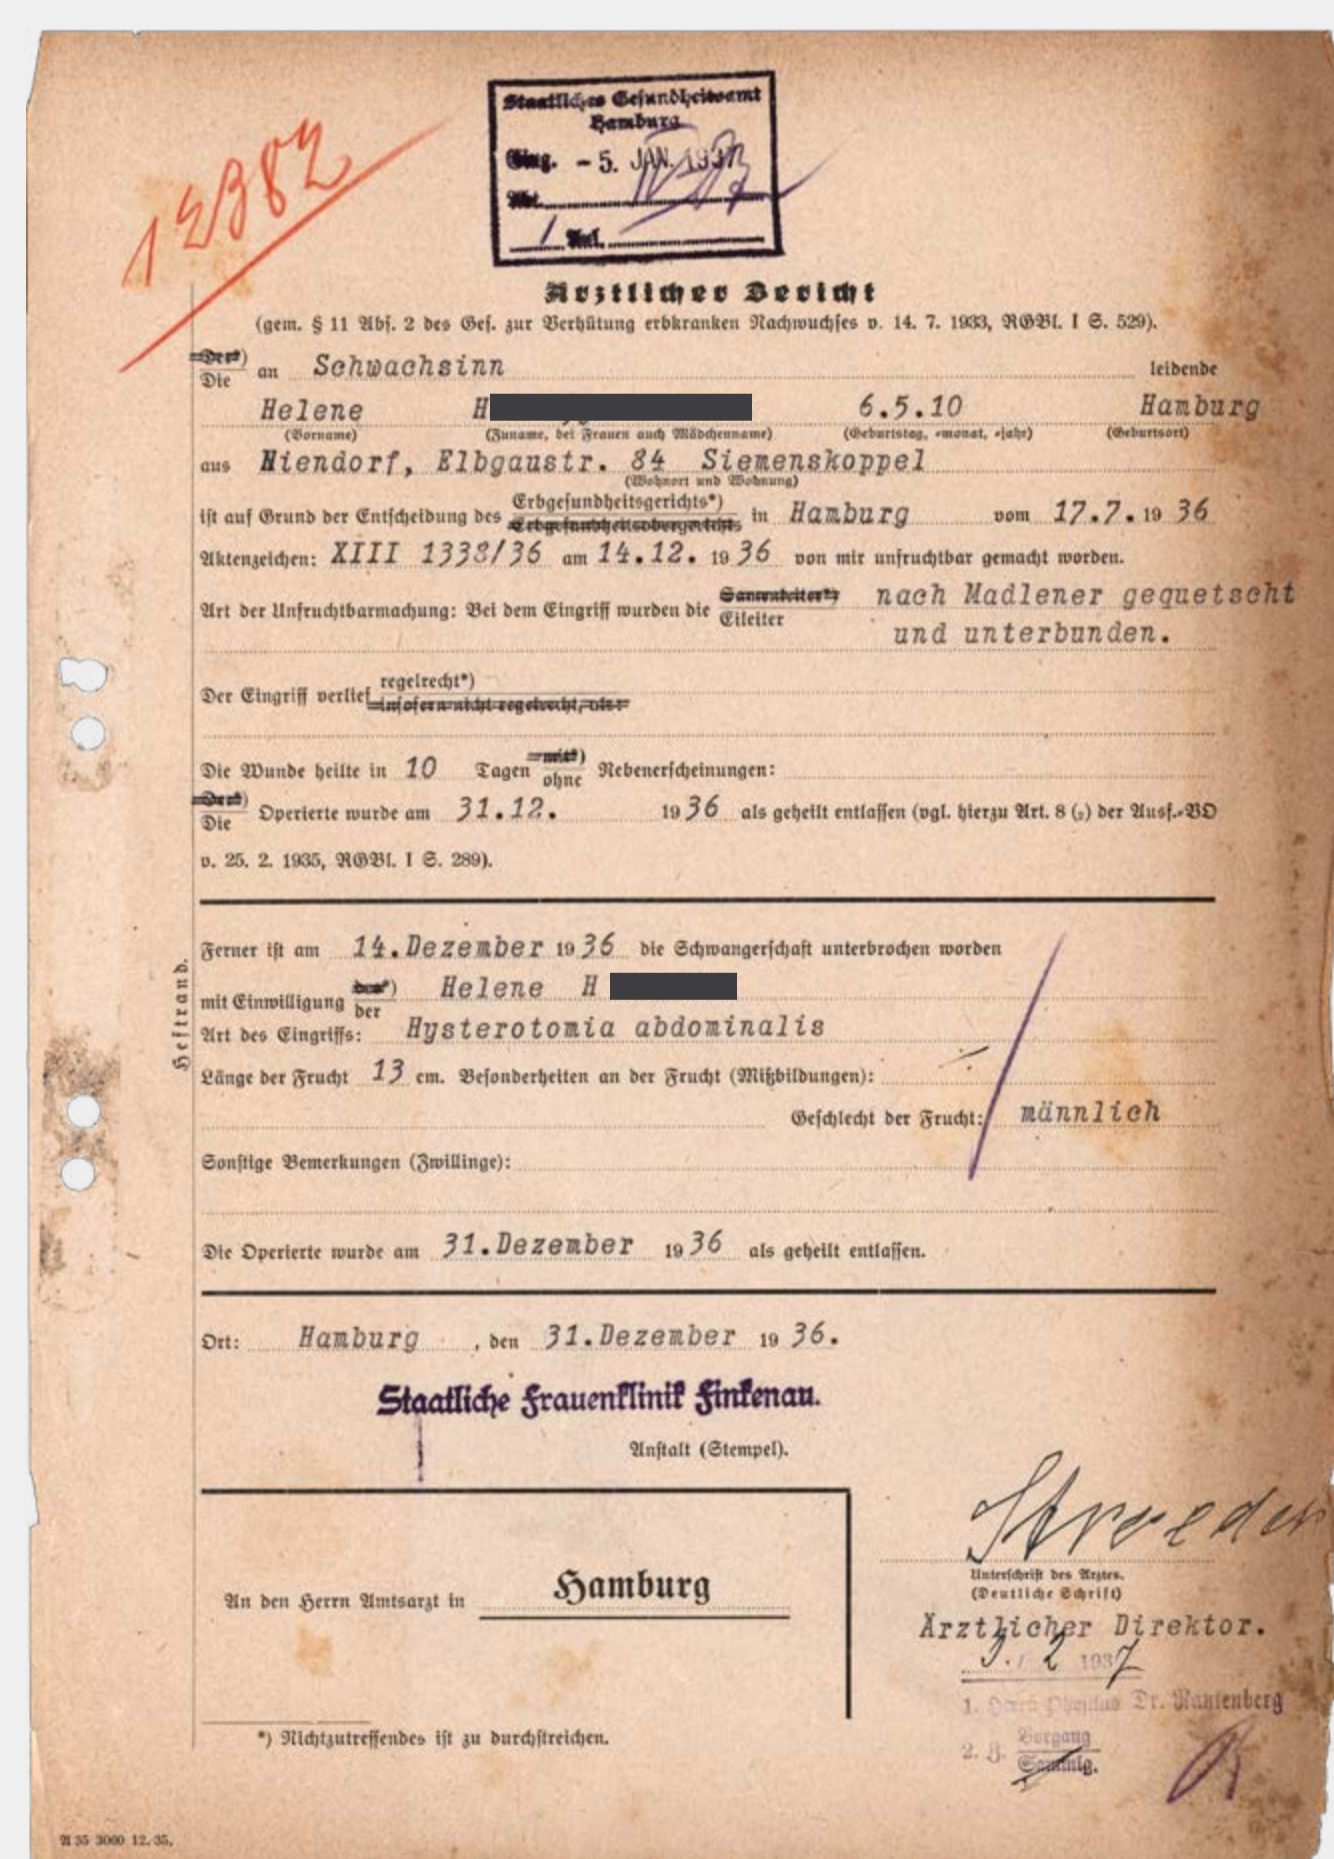 Staatliches Gesundheitsamt
Hamburg
Eing. - 5. JAN. 1937
Abt.
1 Anl.
12382
Ärztlicher Bericht
(gem. § 11 Abs. 2 des Ges. zur Verhütung erbkranken Nachwuchses v. 14. 7. 1933, RGBl. I S. 529).
Der*)
Die an Schwachsinn leidende
Helene H 6.5.10 Hamburg
(Vorname) (Zuname, bei Frauen auch Mädchenname) (Geburtstag, -monat, -jahr) (Geburtsort)
aus Niendorf, Elbgaustr. 84 Siemenskoppel
(Wohnort und Wohnung)
ist auf Grund der Entscheidung des Erbgesundheitsgerichts*) in Hamburg vom 17.7. 19 36
Erbgesundheitsobergerichts
Aktenzeichen: XIII 1338/36 am 14.12. 19 36 von mir unfruchtbar gemacht worden.
Art der Unfruchtbarmachung: Bei dem Eingriff wurden die Samenleiter*) nach Madlener gequetscht
Eileiter und unterbunden.
Der Eingriff verlief regelrecht*)
insofern nicht regelrecht, als:
Die Wunde heilte in 10 Tagen mit*) Nebenerscheinungen:
ohne
Der*)
Die Operierte wurde am 31.12. 19 36 als geheilt entlassen (vgl. hierzu Art. 8 (2) der Ausf.-VO
v. 25. 2. 1935, RGBl. I S. 289).
Ferner ist am 14.Dezember 19 36 die Schwangerschaft unterbrochen worden
mit Einwilligung des*) Helene H
der
Art des Eingriffs: Hysterotomia abdominalis
Länge der Frucht 13 cm. Besonderheiten an der Frucht (Mißbildungen):
Geschlecht der Frucht: männlich
Sonstige Bemerkungen (Zwillinge):
Die Operierte wurde am 31.Dezember 19 36 als geheilt entlassen.
Heftrand.
Ort: Hamburg , den 31.Dezember 19 36.
Staatliche Frauenklinik Finkenau.
Anstalt (Stempel).
An den Herrn Amtsarzt in Hamburg
Unterschrift des Arztes.
(Deutliche Schrift)
Ärztlicher Direktor.
3. / 2 1937
1. Herrn Physikus Dr. Rautenberg
2. Z. Vorgang
Sammlg.
*) Nichtzutreffendes ist zu durchstreichen.
A 35 3000 12. 35.